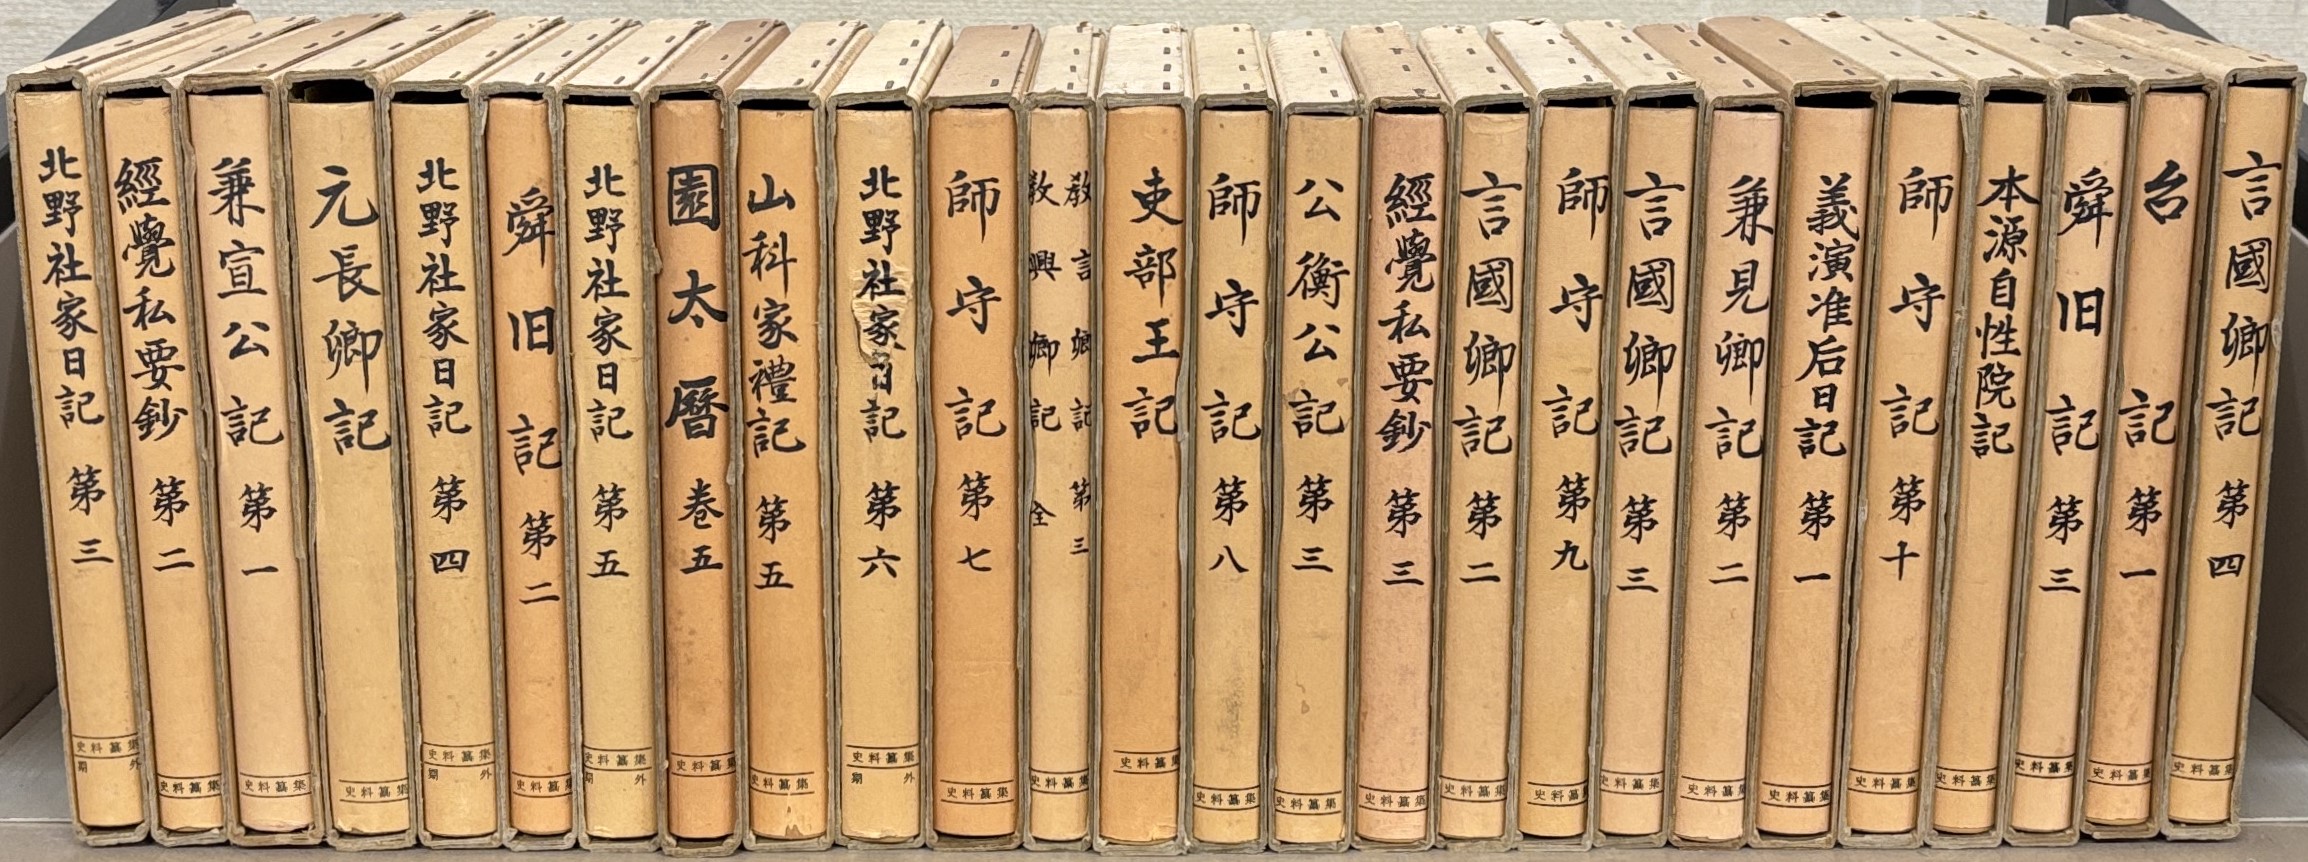 北野社家日記 第三
史料纂集
期外
經覺私要鈔 第二
史料纂集
兼宣公記 第一
史料纂集
元長卿記
史料纂集
北野社家日記 第四
史料纂集
期外
舜旧記 第二
史料纂集
北野社家日記 第五
史料纂集
期外
園太暦 巻五
史料纂集
山科家禮記 第五
史料纂集
北野社家日記 第六
史料纂集
期外
師守記 第七
史料纂集
教言卿記 第三
教興卿記 全
史料纂集
吏部王記
史料纂集
師守記 第八
史料纂集
公衡公記 第三
史料纂集
經覺私要鈔 第三
史料纂集
言國卿記 第二
史料纂集
師守記 第九
史料纂集
言國卿記 第三
史料纂集
兼見卿記 第二
史料纂集
義演准后日記 第一
史料纂集
師守記 第十
史料纂集
本源自性院記
史料纂集
舜旧記 第三
史料纂集
台記 第一
史料纂集
言國卿記 第四
史料纂集